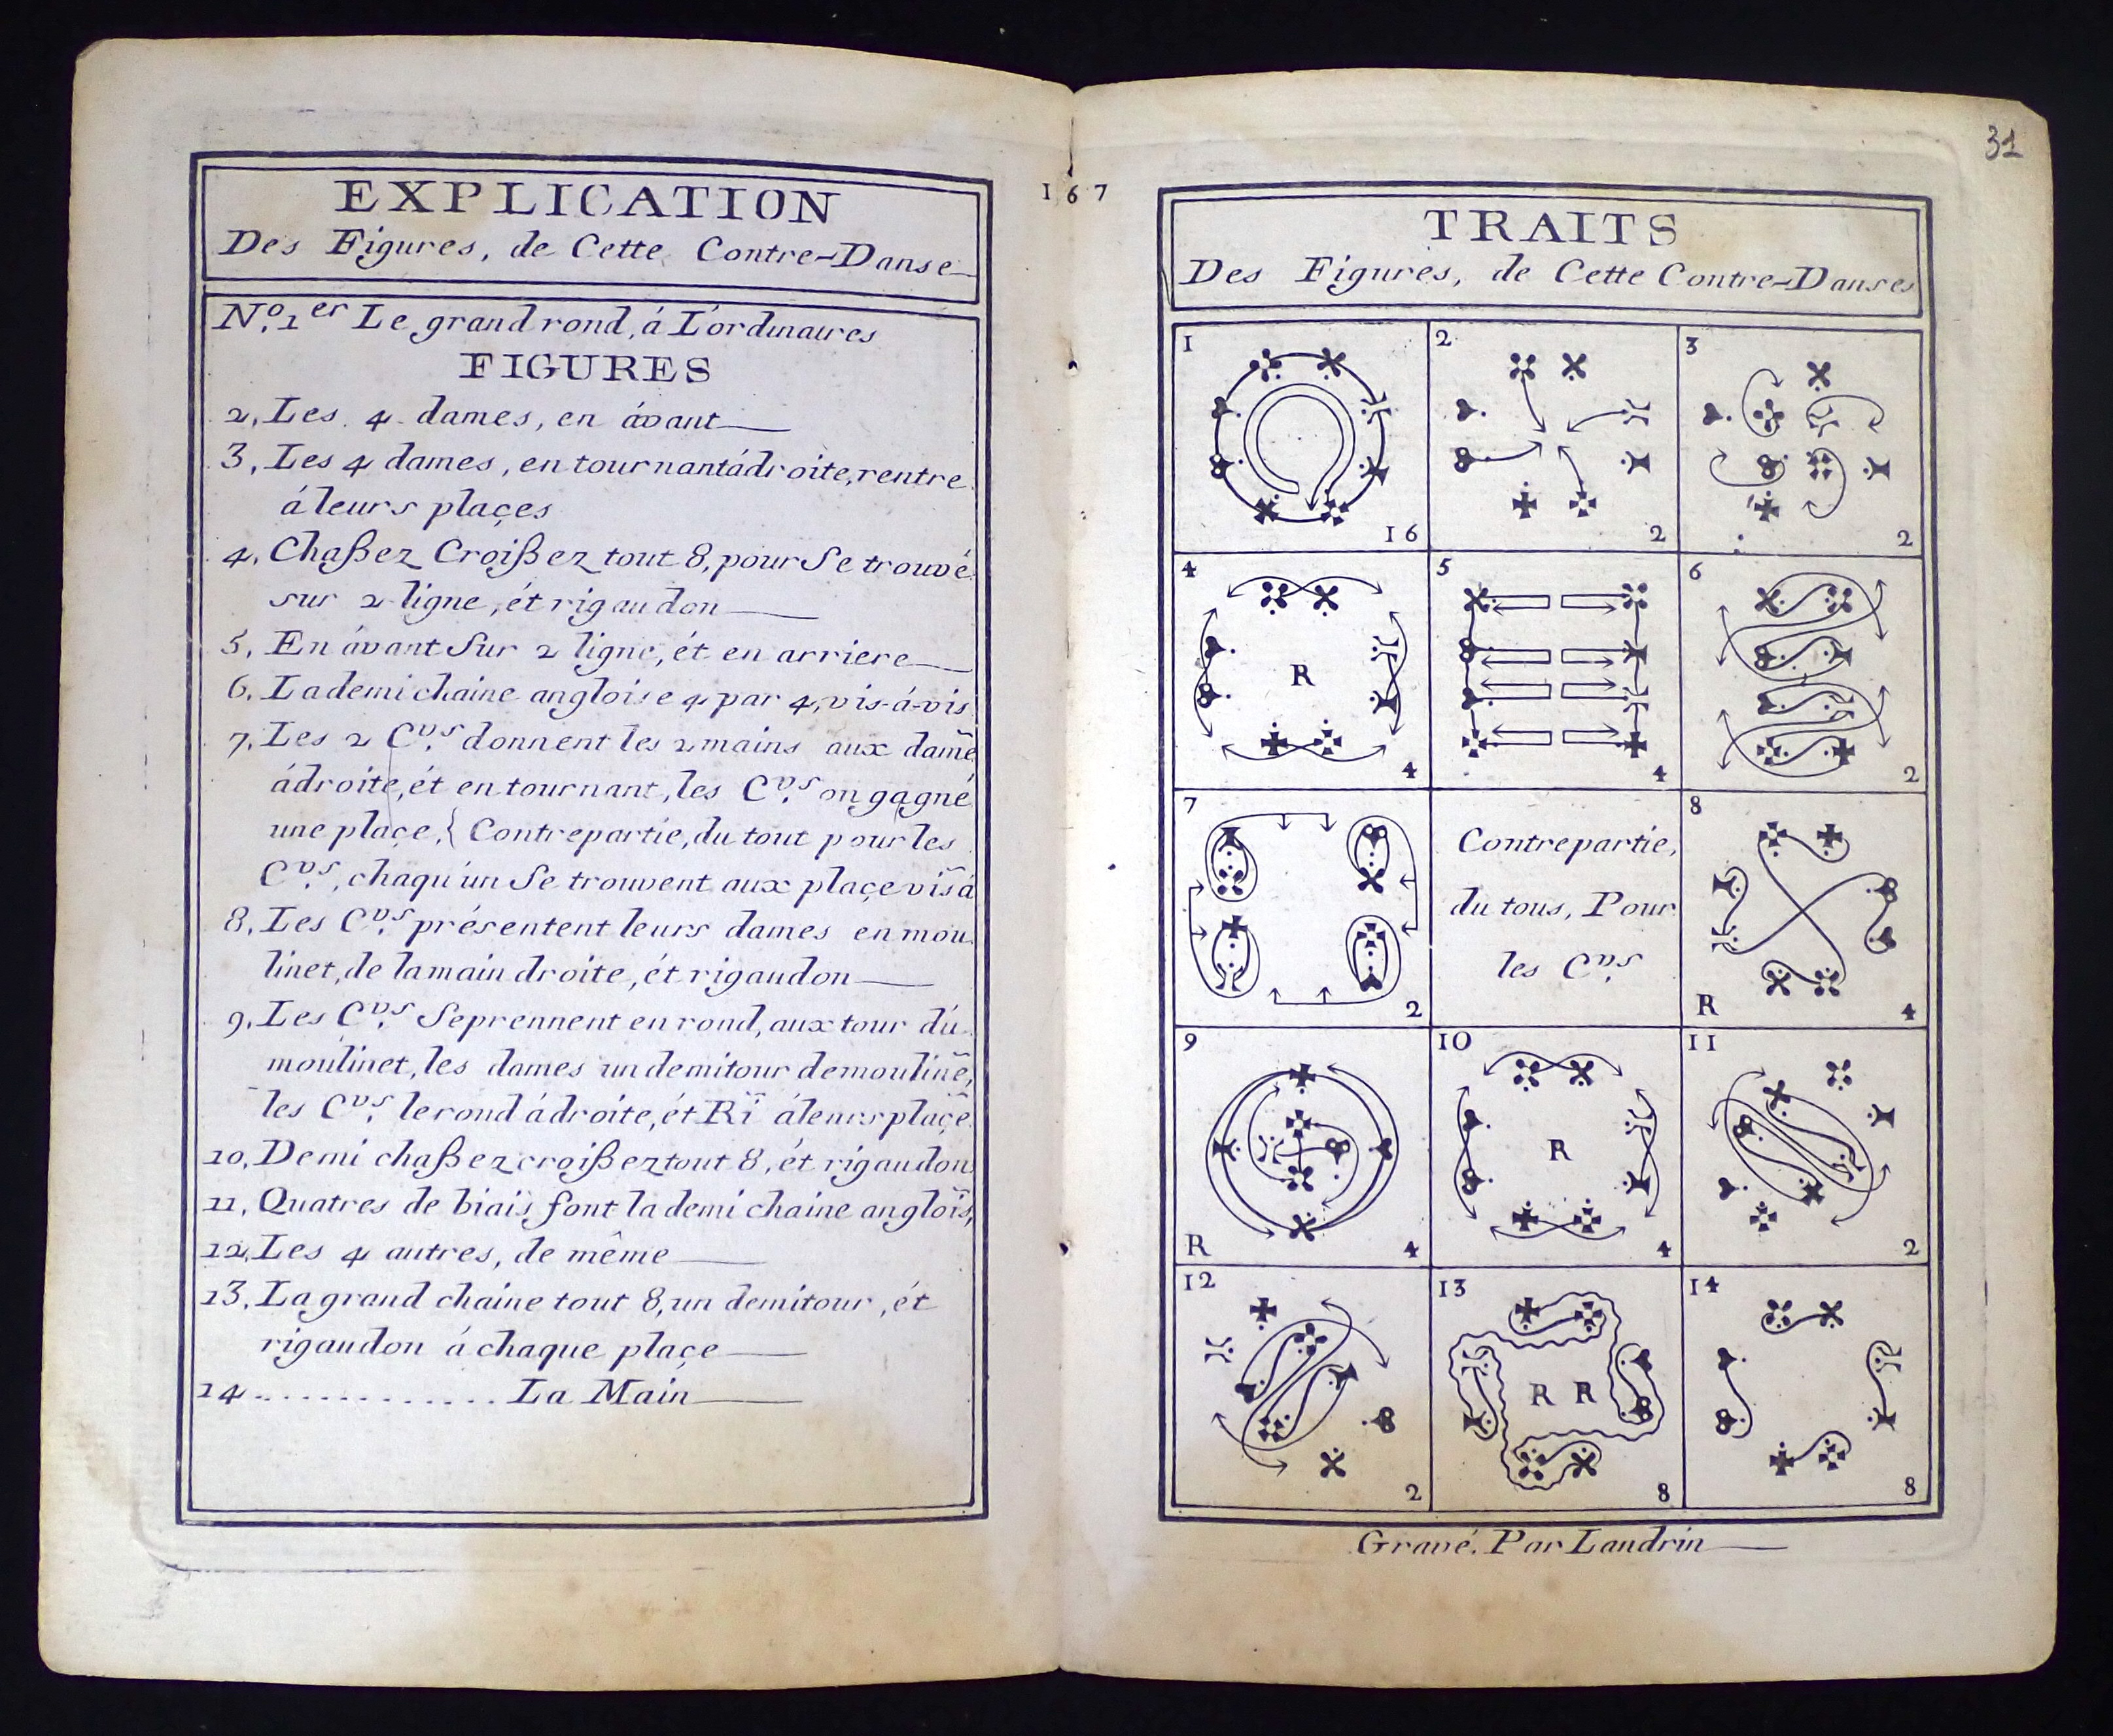 EXPLICATION
Des Figures, de Cette Contre-Danse
N.o 1er Le grand rond, á L'ordinaires
FIGURES
2, Les 4 dames, en ávant
3, Les 4 dames, en tournant ádroite, rentre
á leurs plaçes
4, Chaßez Croißez tout 8, pour Se trouvé
sur 2 ligne, ét rigaudon
5, En ávant Sur 2 ligne, ét en arriere
6, La demi chaine angloise 4 par 4, vis-á-vis
7, Les 2 C.vrs donnent les 2 mains aux dam̃e
ádroite, ét en tournant, les C.vrs on gagné
une plaçe, { Contrepartie, du tout pour les
C.vrs, chaqu'un Se trouvent aux plaçe vis̃ á
8, Les C.vrs présentent leurs dames en mou
linet, de la main droite, ét rigaudon
9, Les C.vrs Se prennent en rond, aux tour dú
moulinet, les dames un demitour de mouliñe,
les C.vrs le rond ádroite, ét Rĩ áleurs plaçẽ
10, Demi chaßez croißez tout 8, ét rigaudon
11, Quatres de biais font la demi chaine anglois̃,
12, Les 4 autres, de même
13, La grand chaine tout 8, un demitour, ét
rigaudon á chaque plaçe
14 ............. La Main
167
31
TRAITS
Des Figures, de Cette Contre-Danses
1
16
2
2
3
2
4
R
4
5
4
6
2
7
2
Contrepartie,
du tous, Pour
les C.vrs
8
R
4
9
R
4
10
R
4
11
2
12
2
13
R R
8
14
8
Gravé. Par Landrin